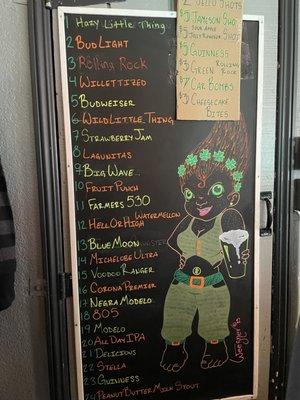 Hazy Little Thing
2 Bud Light
3 Rolling Rock
4 Willettized
5 Budweiser
6 Wild Little Thing
7 Strawberry Jam
8 Lagunitas
9 Big Wave
10 Fruit Punch
11 Farmers 530
12 Hell Or High Watermelon
13 Blue Moon
14 Michelobe Ultra
15 Voodoo Ranger
16 Corona Premier
17 Negra Modelo
18 805
19 Modelo
20 All Day IPA
21 Delicious
22 Stella
23 Guinness
24 Peanut Butter Milk Stout
Jello Shots
$5 Jameson Shot
Sour Apple
$5 Jolly Rancher Shots
$5 Guinness
$3 Green Rolling Rock
$7 Car Bombs
$3 Cheesecake Bites